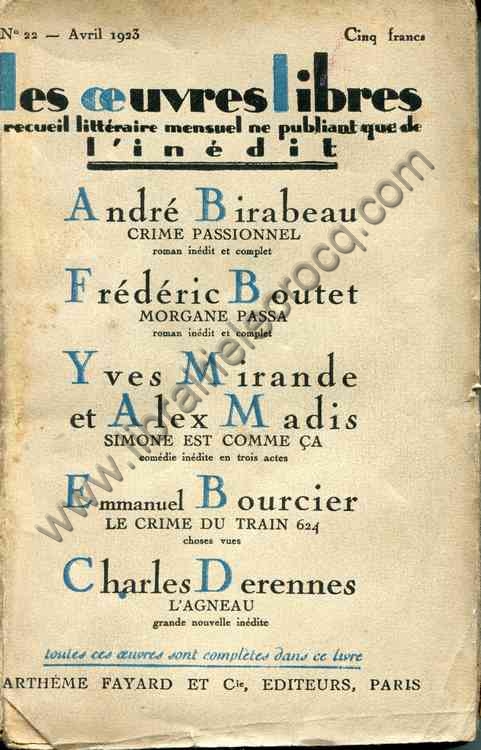 N° 22 — Avril 1923 Cinq francs
les œuvres libres
recueil littéraire mensuel ne publiant que de
l'inédit
André Birabeau
CRIME PASSIONNEL
roman inédit et complet
Frédéric Boutet
MORGANE PASSA
roman inédit et complet
Yves Mirande
et Alex Madis
SIMONE EST COMME ÇA
comédie inédite en trois actes
Emmanuel Bourcier
LE CRIME DU TRAIN 624
choses vues
Charles Derennes
L'AGNEAU
grande nouvelle inédite
toutes ces œuvres sont complètes dans ce livre
ARTHÈME FAYARD ET Cie, EDITEURS, PARIS
www.librairielescrocq.com